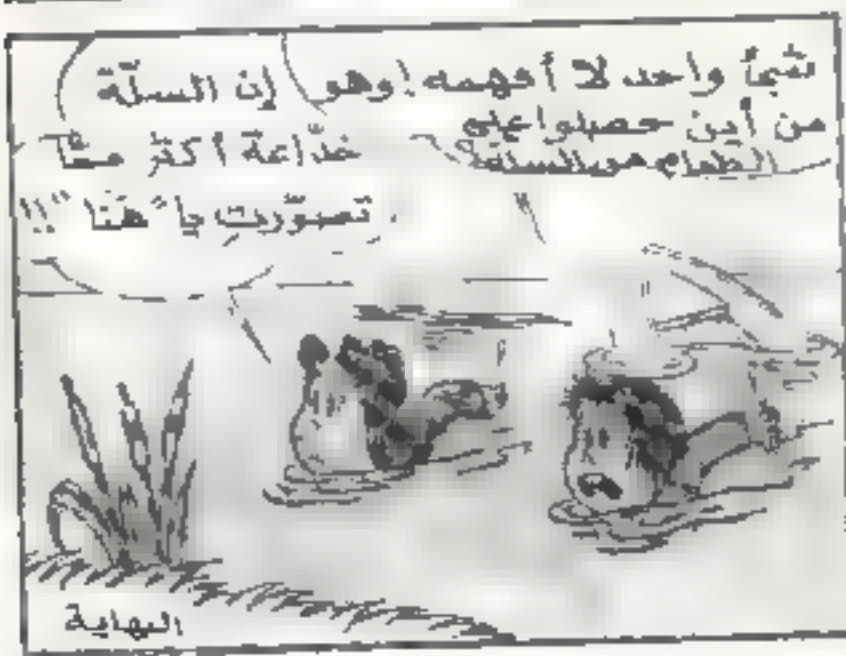 شيئاً واحد لا أفهمه! وهو
من أين حصلوا على
الطعام من السلة؟
إن السلّة
خدّاعة أكثر ممّا
تصوّرت يا "هَنا"!!
النهاية